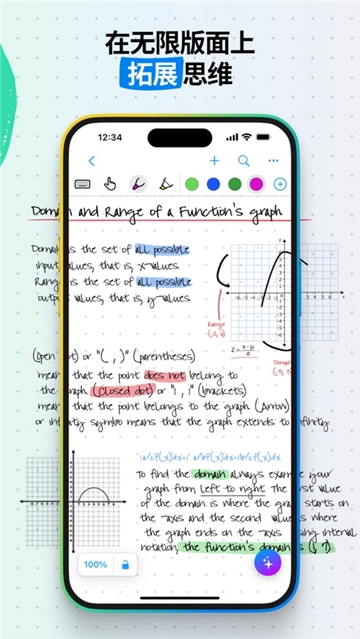 在无限版面上
拓展思维
12:34
Domain and Range of a Function's graph
Domain is the set of all possible
input values, that is, x-values
Range is the set of all possible
output values, that is, y-values
Range
Domain
(open dot) or "( , )" (parentheses)
means that the point does not belong to
the graph (closed dot) or "[ , ]" (brackets)
means that the point belongs to the graph (Arrow)
or infinity symbo means that the graph extends to infinity
To find the domain always examine your
graph from left to right The first value
of the domain is where the graph starts on
the axis and the second value is where
the graph ends on the axis using interval
notation, the function's domain is
100%